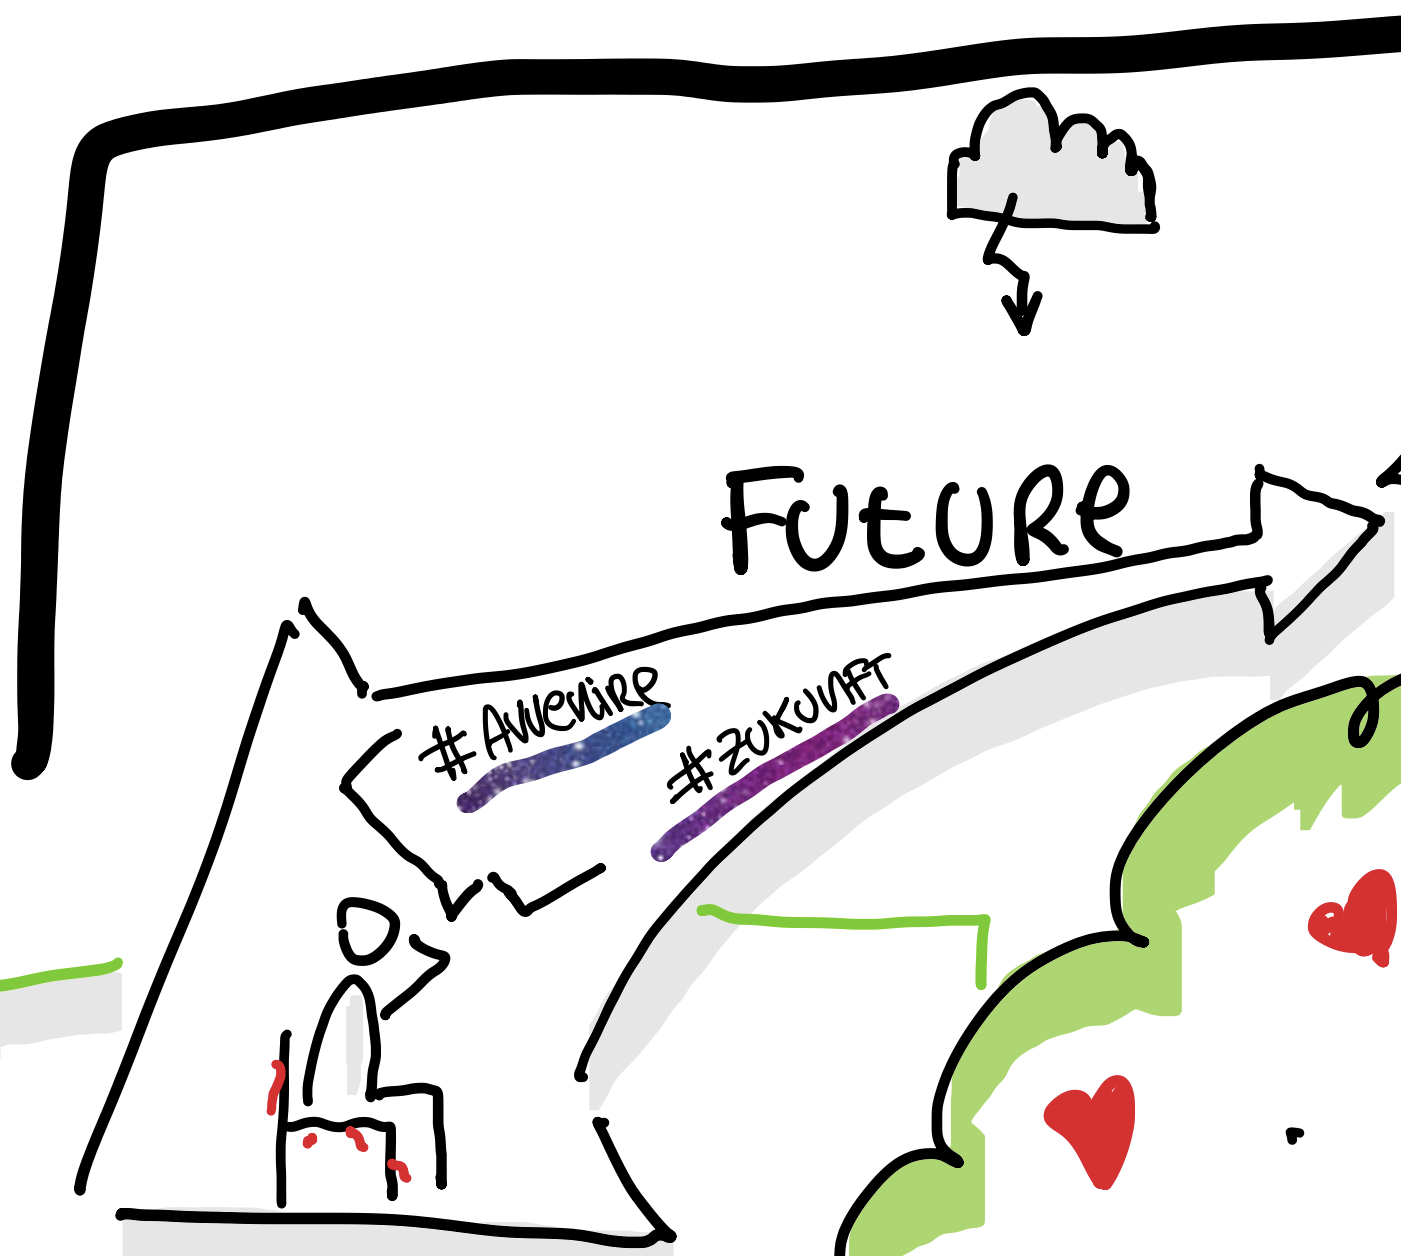 FUtURe
#AVVeNiRe
#ZUKUNFT